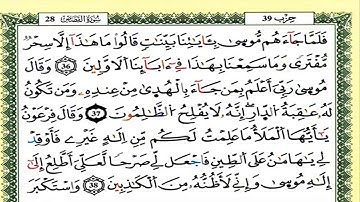 حِزْب 39 سُورَةُ القَصَصِ 28
فَلَمَّا جَآءَهُم مُّوسَىٰ بِـَٔايَٰتِنَا بَيِّنَٰتٖ قَالُواْ مَا هَٰذَآ إِلَّا سِحْرٞ
مُّفْتَرٗى وَمَا سَمِعْنَا بِهَٰذَا فِےٓ ءَابَآئِنَا اَ۬لَاوَّلِينَۖ 36 وَقَالَ
مُوسَىٰ رَبِّيَ أَعْلَمُ بِمَن جَآءَ بِالْهُدَىٰ مِنْ عِندِهِۦ وَمَن تَكُونُ
لَهُۥ عَٰقِبَةُ اُ۬لدِّارِۖ إِنَّهُۥ لَا يُفْلِحُ اُ۬لظَّٰلِمُونَۖ 37 وَقَالَ فِرْعَوْنُ
يَٰٓأَيُّهَا اَ۬لْمَلَأُ مَا عَلِمْتُ لَكُم مِّنِ اِلَٰهٍ غَيْرِے فَأَوْقِدْ
لِے يَٰهَٰمَٰنُ عَلَى اَ۬لطِّينِ فَاجْعَل لِّے صَرْحاٗ لَّعَلِّيَ أَطَّلِعُ إِلَىٰٓ
إِلَٰهِ مُوسَىٰ وَإِنِّے لَأَظُنُّهُۥ مِنَ اَ۬لْكَٰذِبِينَۖ 38 وَاسْتَكْبَرَ